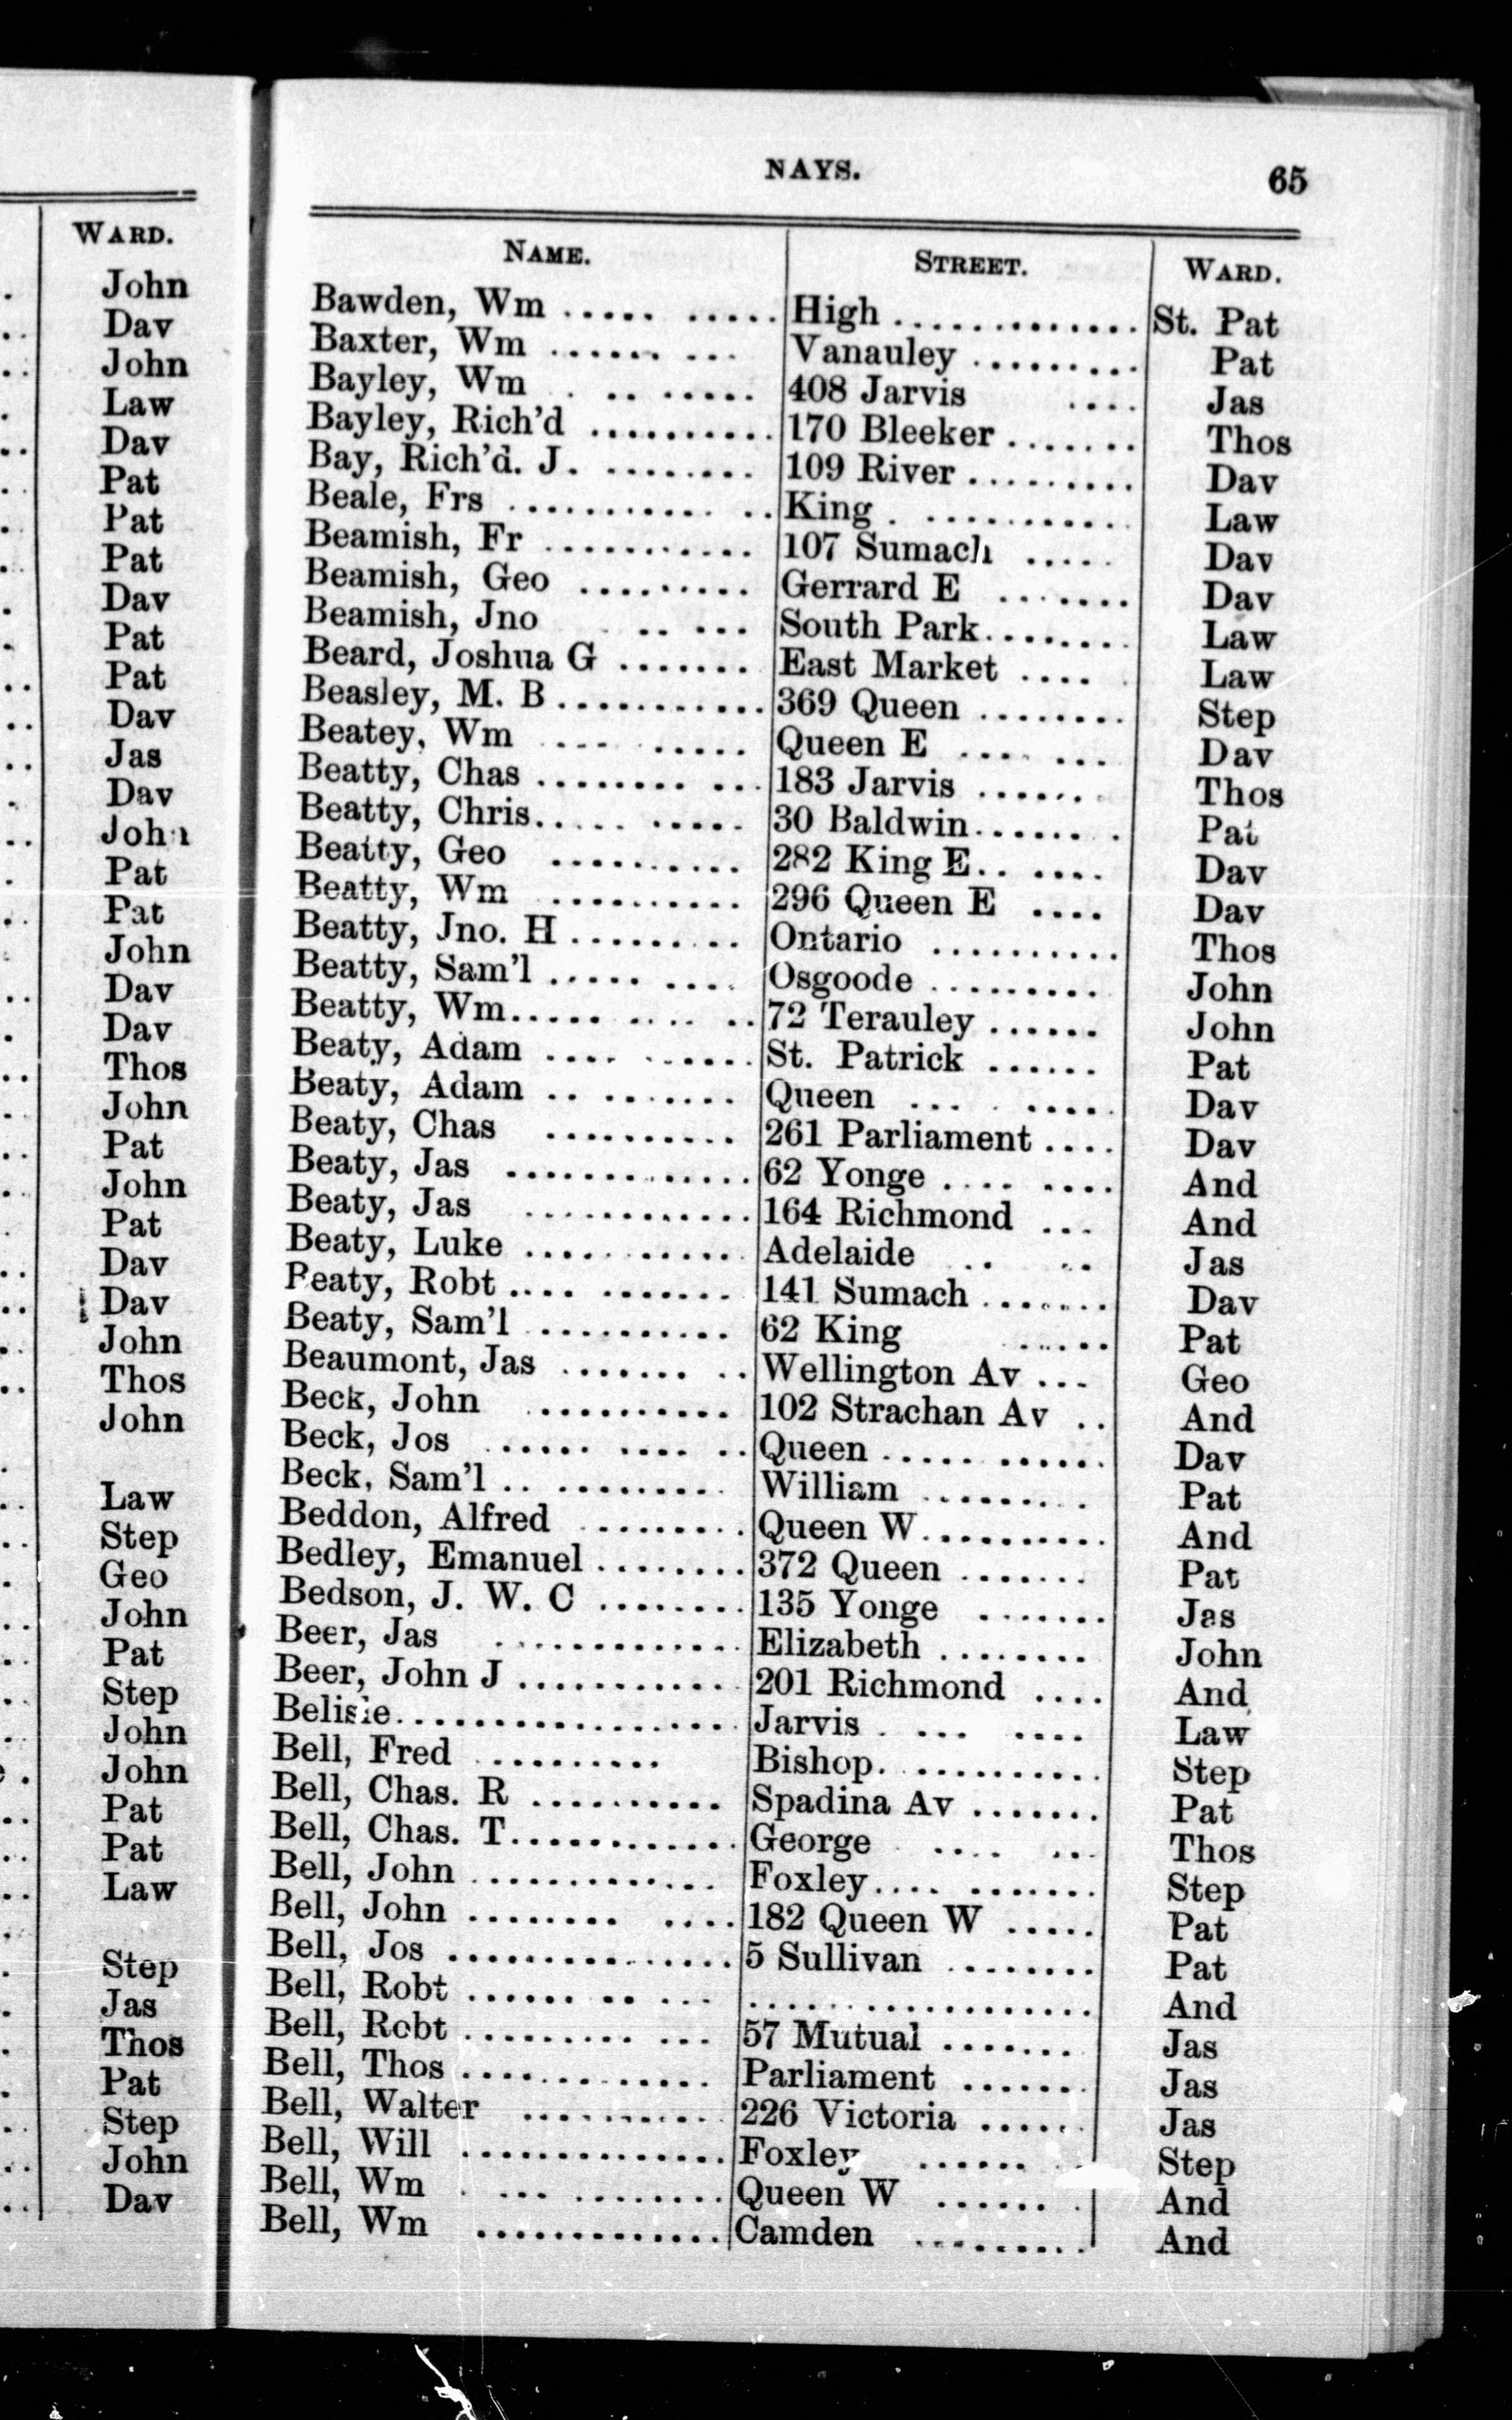 WARD.
John
Dav
John
Law
Dav
Pat
Pat
Pat
Dav
Pat
Pat
Dav
Jas
Dav
John
Pat
Pat
John
Dav
Dav
Thos
John
Pat
John
Pat
Dav
Dav
John
Thos
John
Law
Step
Geo
John
Pat
Step
John
John
Pat
Pat
Law
Step
Jas
Thos
Pat
Step
John
Dav
NAYS. 65
NAME. STREET. WARD.
Bawden, Wm .......... High ............. St. Pat
Baxter, Wm ......... Vanauley ......... Pat
Bayley, Wm ........ 408 Jarvis .... Jas
Bayley, Rich'd .......... 170 Bleeker ....... Thos
Bay, Rich'd. J. ........ 109 River ......... Dav
Beale, Frs ............. King ............ Law
Beamish, Fr ........... 107 Sumach ..... Dav
Beamish, Geo ......... Gerrard E ....... Dav
Beamish, Jno ..... South Park........ Law
Beard, Joshua G ....... East Market .... Law
Beasley, M. B ........... 369 Queen ........ Step
Beatey, Wm ......... Queen E ....... Dav
Beatty, Chas ........... 183 Jarvis ...... Thos
Beatty, Chris.......... 30 Baldwin........ Pat
Beatty, Geo .......... 282 King E...... Dav
Beatty, Wm .......... 296 Queen E .... Dav
Beatty, Jno. H ......... Ontario .......... Thos
Beatty, Sam'l ......... Osgoode ......... John
Beatty, Wm........... 72 Terauley ...... John
Beaty, Adam .......... St. Patrick ...... Pat
Beaty, Adam ......... Queen ........ Dav
Beaty, Chas .......... 261 Parliament .... Dav
Beaty, Jas ............. 62 Yonge ........ And
Beaty, Jas ............ 164 Richmond ... And
Beaty, Luke ........... Adelaide .... Jas
Beaty, Robt ........... 141 Sumach ....... Dav
Beaty, Sam'l .......... 62 King ..... Pat
Beaumont, Jas ......... Wellington Av ... Geo
Beck, John .......... 102 Strachan Av .. And
Beck, Jos ............ Queen ........... Dav
Beck, Sam'l ........... William ......... Pat
Beddon, Alfred ........ Queen W.......... And
Bedley, Emanuel ........ 372 Queen ....... Pat
Bedson, J. W. C ........ 135 Yonge ....... Jas
Beer, Jas ............. Elizabeth ........ John
Beer, John J ............ 201 Richmond .... And
Belisie.................. Jarvis ........ Law
Bell, Fred .......... Bishop. .......... Step
Bell, Chas. R .......... Spadina Av ....... Pat
Bell, Chas. T............ George ....... Thos
Bell, John ............. Foxley........... Step
Bell, John ............ 182 Queen W ..... Pat
Bell, Jos ............... 5 Sullivan ........ Pat
Bell, Robt ........... .................. And
Bell, Robt ............ 57 Mutual ....... Jas
Bell, Thos ............. Parliament ....... Jas
Bell, Walter .......... 226 Victoria ..... Jas
Bell, Will ............. Foxley ...... Step
Bell, Wm ............ Queen W ....... And
Bell, Wm ............. Camden ......... And